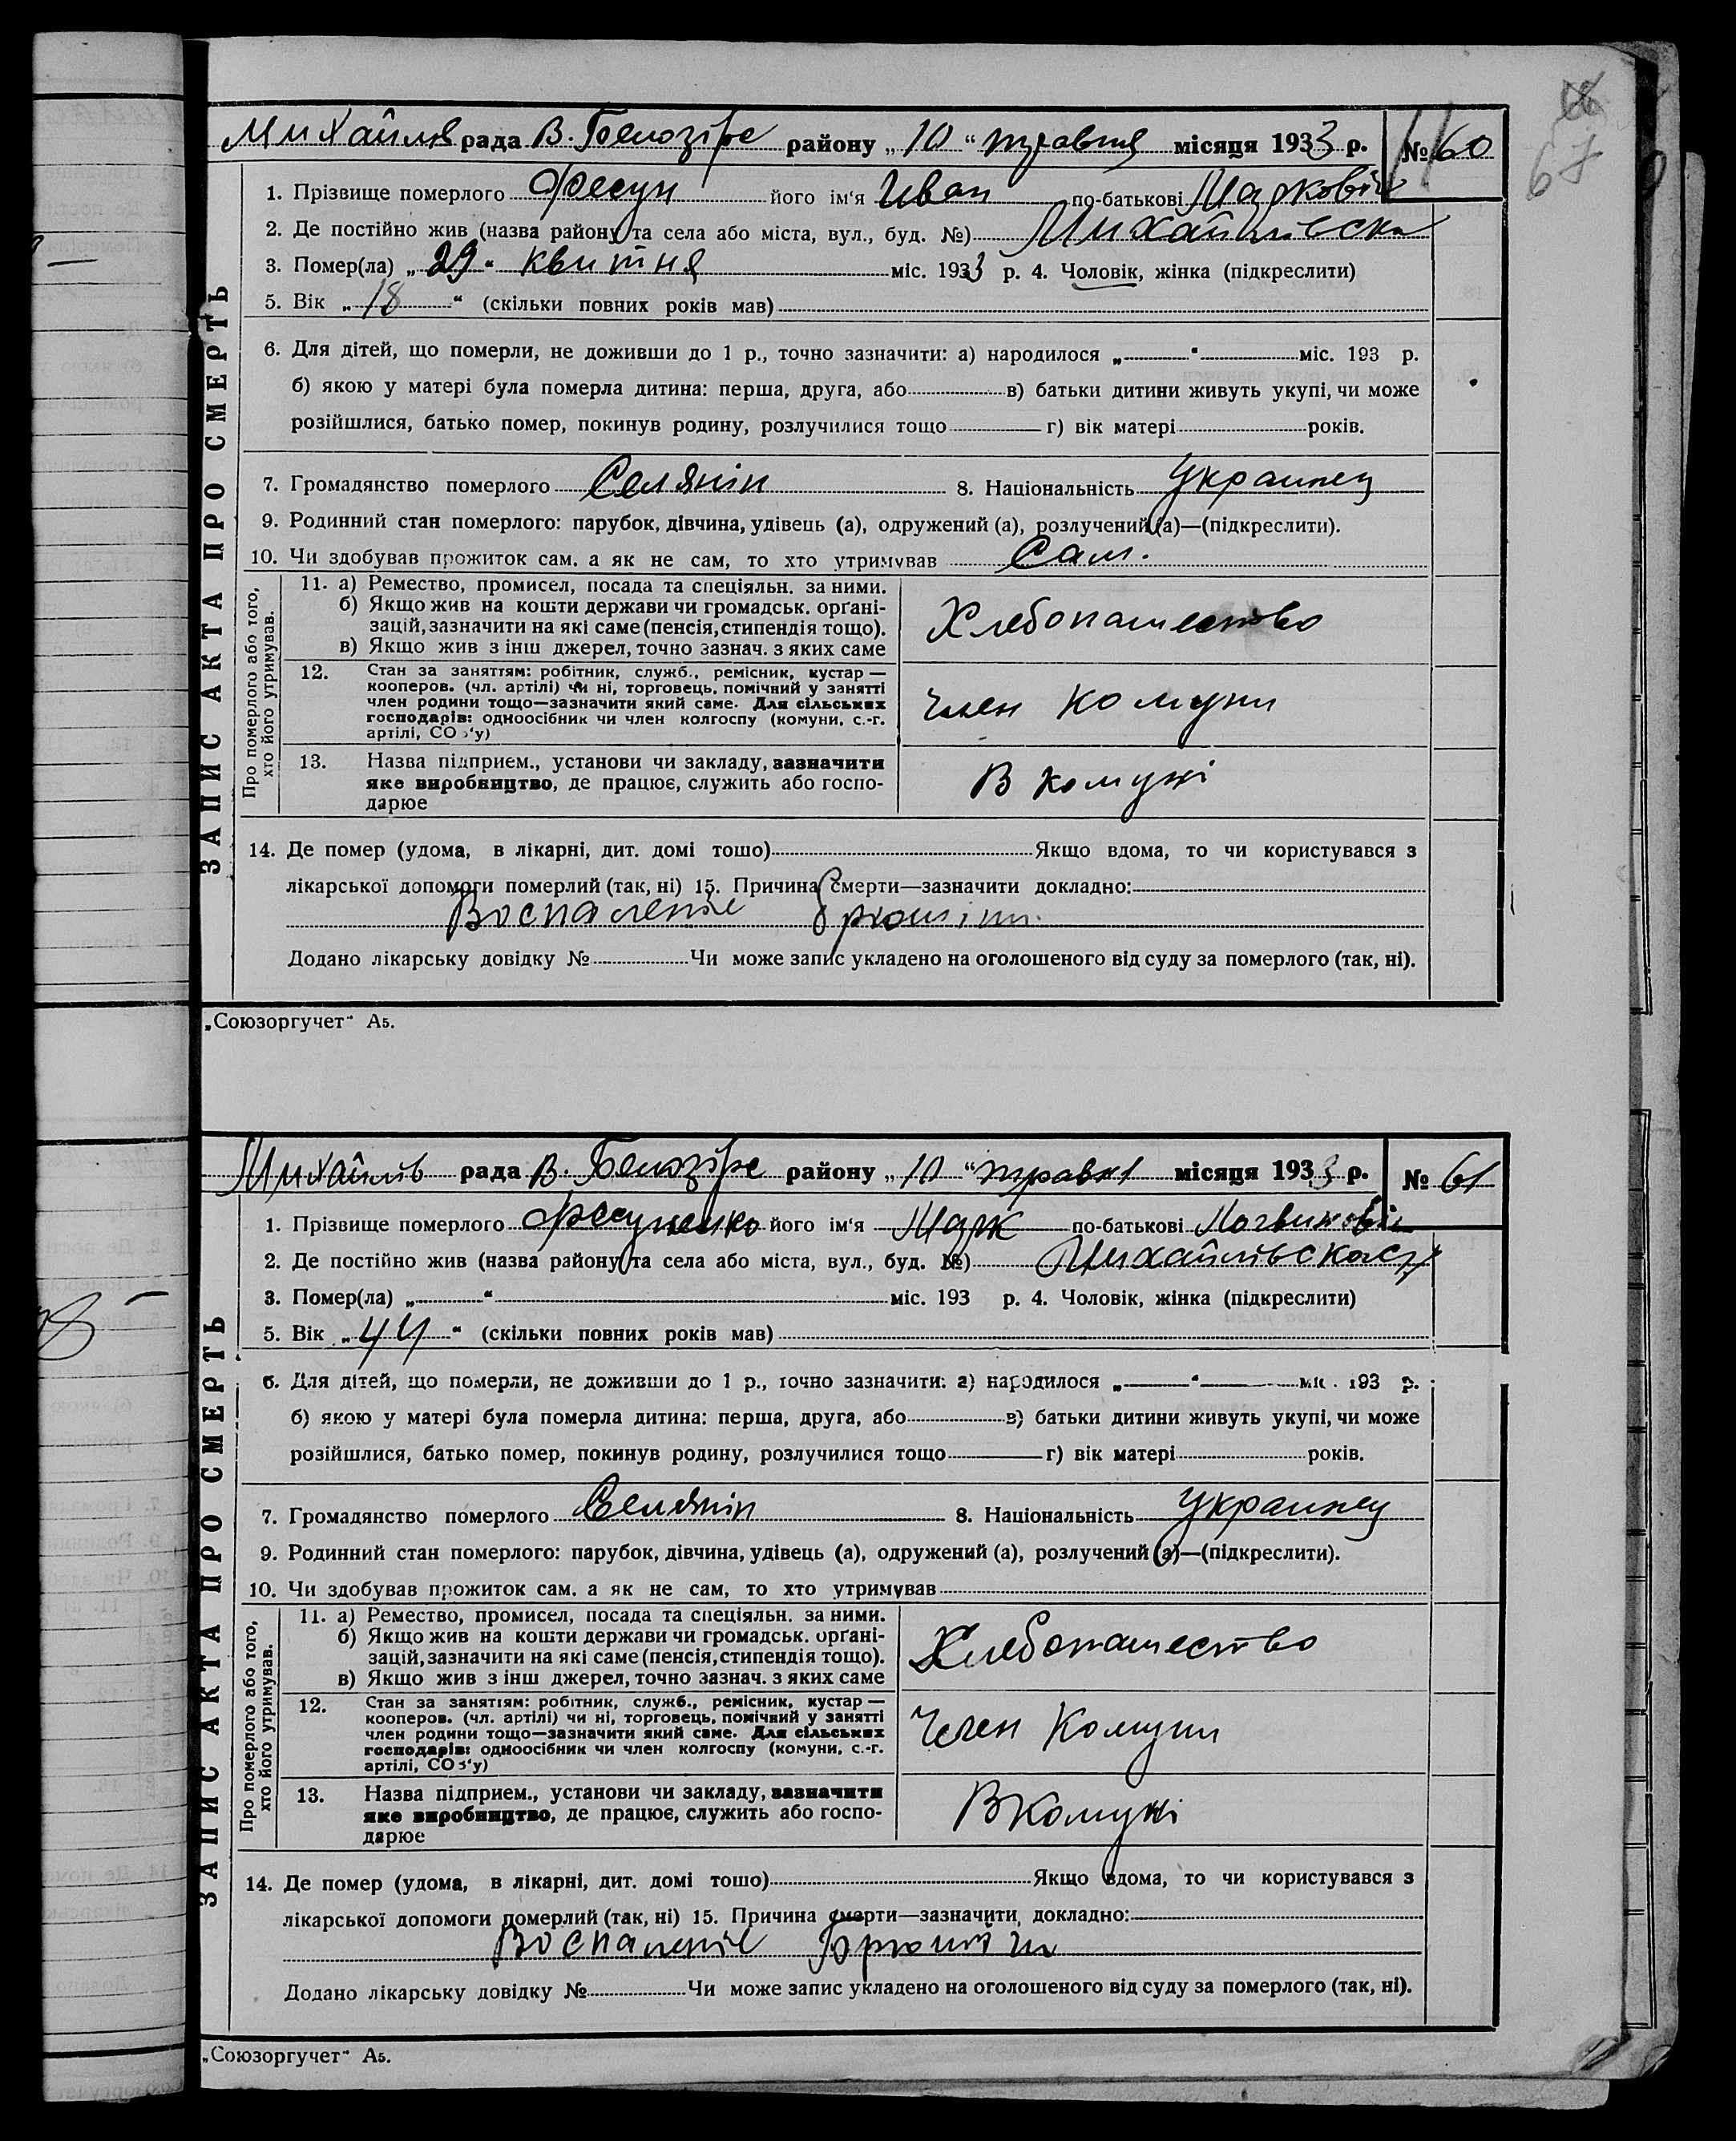 67
Михайлів рада В. Белозірс району „10" травня місяця 1933 р. № 60
1. Прізвище померлого Фесун його ім'я Иван по-батькові Марковіч
2. Де постійно жив (назва району та села або міста, вул., буд. №) Михайлівска
3. Помер(ла) „29" квитня міс. 1933 р. 4. Чоловік, жінка (підкреслити)
5. Вік „18" (скільки повних років мав)
6. Для дітей, що померли, не доживши до 1 р., точно зазначити: а) народилося „ " міс. 193 р.
б) якою у матері була померла дитина: перша, друга, або в) батьки дитини живуть укупі, чи може
розійшлися, батько помер, покинув родину, розлучилися тощо г) вік матері років.
7. Громадянство померлого Селянін 8. Національність Украинец
9. Родинний стан померлого: парубок, дівчина, удівець (а), одружений (а), розлучений (а)—(підкреслити).
10. Чи здобував прожиток сам, а як не сам, то хто утримував Сам.
ЗАПИС АКТА ПРО СМЕРТЬ
Про померлого або того,
хто його утримував.
11. а) Ремество, промисел, посада та спеціяльн. за ними.
б) Якщо жив на кошти держави чи громадськ. орґані-
зацій, зазначити на які саме (пенсія, стипендія тощо).
в) Якщо жив з інш джерел, точно зазнач. з яких саме
Хлебопашество
12. Стан за заняттям: робітник, служб., ремісник, кустар —
кооперов. (чл. артілі) чи ні, торговець, помічний у занятті
член родини тощо—зазначити який саме. Для сільських
господарів: одноосібник чи член колгоспу (комуни, с.-г.
артілі, СОЗ'у)
Член Комуни
13. Назва підприєм., установи чи закладу, зазначити
яке виробництво, де працює, служить або госпо-
дарює
В комуні
14. Де помер (удома, в лікарні, дит. домі тошо) Якщо вдома, то чи користувався з
лікарської допомоги померлий (так, ні) 15. Причина смерти—зазначити докладно:
Воспаленіе
Додано лікарську довідку № Чи може запис укладено на оголошеного від суду за померлого (так, ні).
„Союзоргучет" А5.
Михайлів рада В. Белозірс району „10" травня місяця 1933 р. № 61
1. Прізвище померлого Фесуненко його ім'я Марк по-батькові Логвиновіч
2. Де постійно жив (назва району та села або міста, вул., буд. №)
3. Помер(ла) „ " міс. 193 р. 4. Чоловік, жінка (підкреслити)
5. Вік „44" (скільки повних років мав)
6. Для дітей, що померли, не доживши до 1 р., точно зазначити: а) народилося „ " міс. 193 р.
б) якою у матері була померла дитина: перша, друга, або в) батьки дитини живуть укупі, чи може
розійшлися, батько помер, покинув родину, розлучилися тощо г) вік матері років.
7. Громадянство померлого Селянін 8. Національність Украинец
9. Родинний стан померлого: парубок, дівчина, удівець (а), одружений (а), розлучений (а)—(підкреслити).
10. Чи здобував прожиток сам, а як не сам, то хто утримував
ЗАПИС АКТА ПРО СМЕРТЬ
Про померлого або того,
хто його утримував.
11. а) Ремество, промисел, посада та спеціяльн. за ними.
б) Якщо жив на кошти держави чи громадськ. орґані-
зацій, зазначити на які саме (пенсія, стипендія тощо).
в) Якщо жив з інш джерел, точно зазнач. з яких саме
Хлебопашество
12. Стан за заняттям: робітник, служб., ремісник, кустар —
кооперов. (чл. артілі) чи ні, торговець, помічний у занятті
член родини тощо—зазначити який саме. Для сільських
господарів: одноосібник чи член колгоспу (комуни, с.-г.
артілі, СОЗ'у)
Член Комуни
13. Назва підприєм., установи чи закладу, зазначити
яке виробництво, де працює, служить або госпо-
дарює
В Комуні
14. Де помер (удома, в лікарні, дит. домі тошо) Якщо вдома, то чи користувався з
лікарської допомоги померлий (так, ні) 15. Причина смерти—зазначити докладно:
Воспаленіе
Додано лікарську довідку № Чи може запис укладено на оголошеного від суду за померлого (так, ні).
„Союзоргучет" А5.